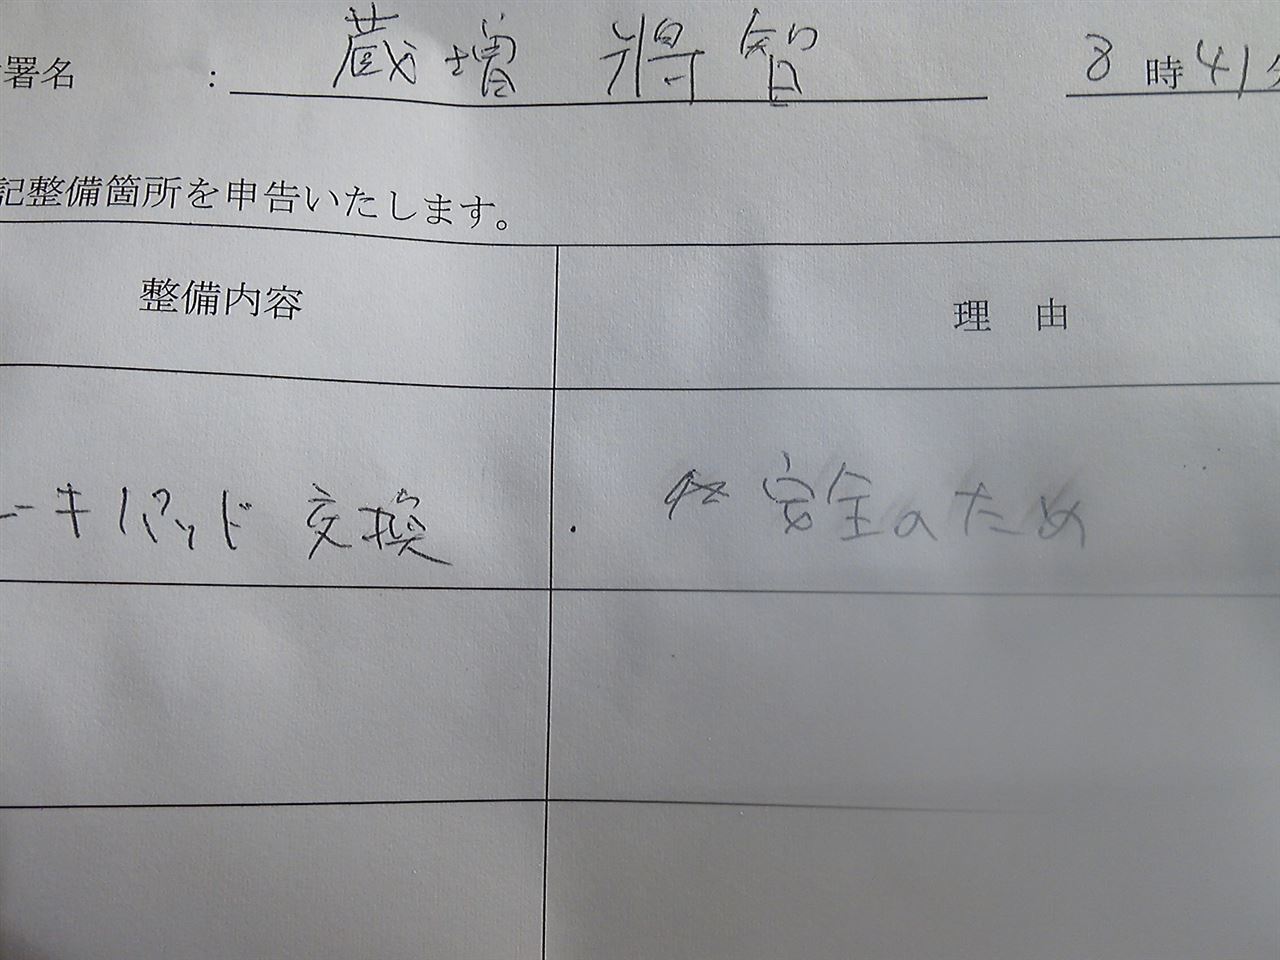 署名 : 蔵増 將智 8時41分
記整備箇所を申告いたします。
整備内容 理 由
ーキパッド交換 . 安全のため